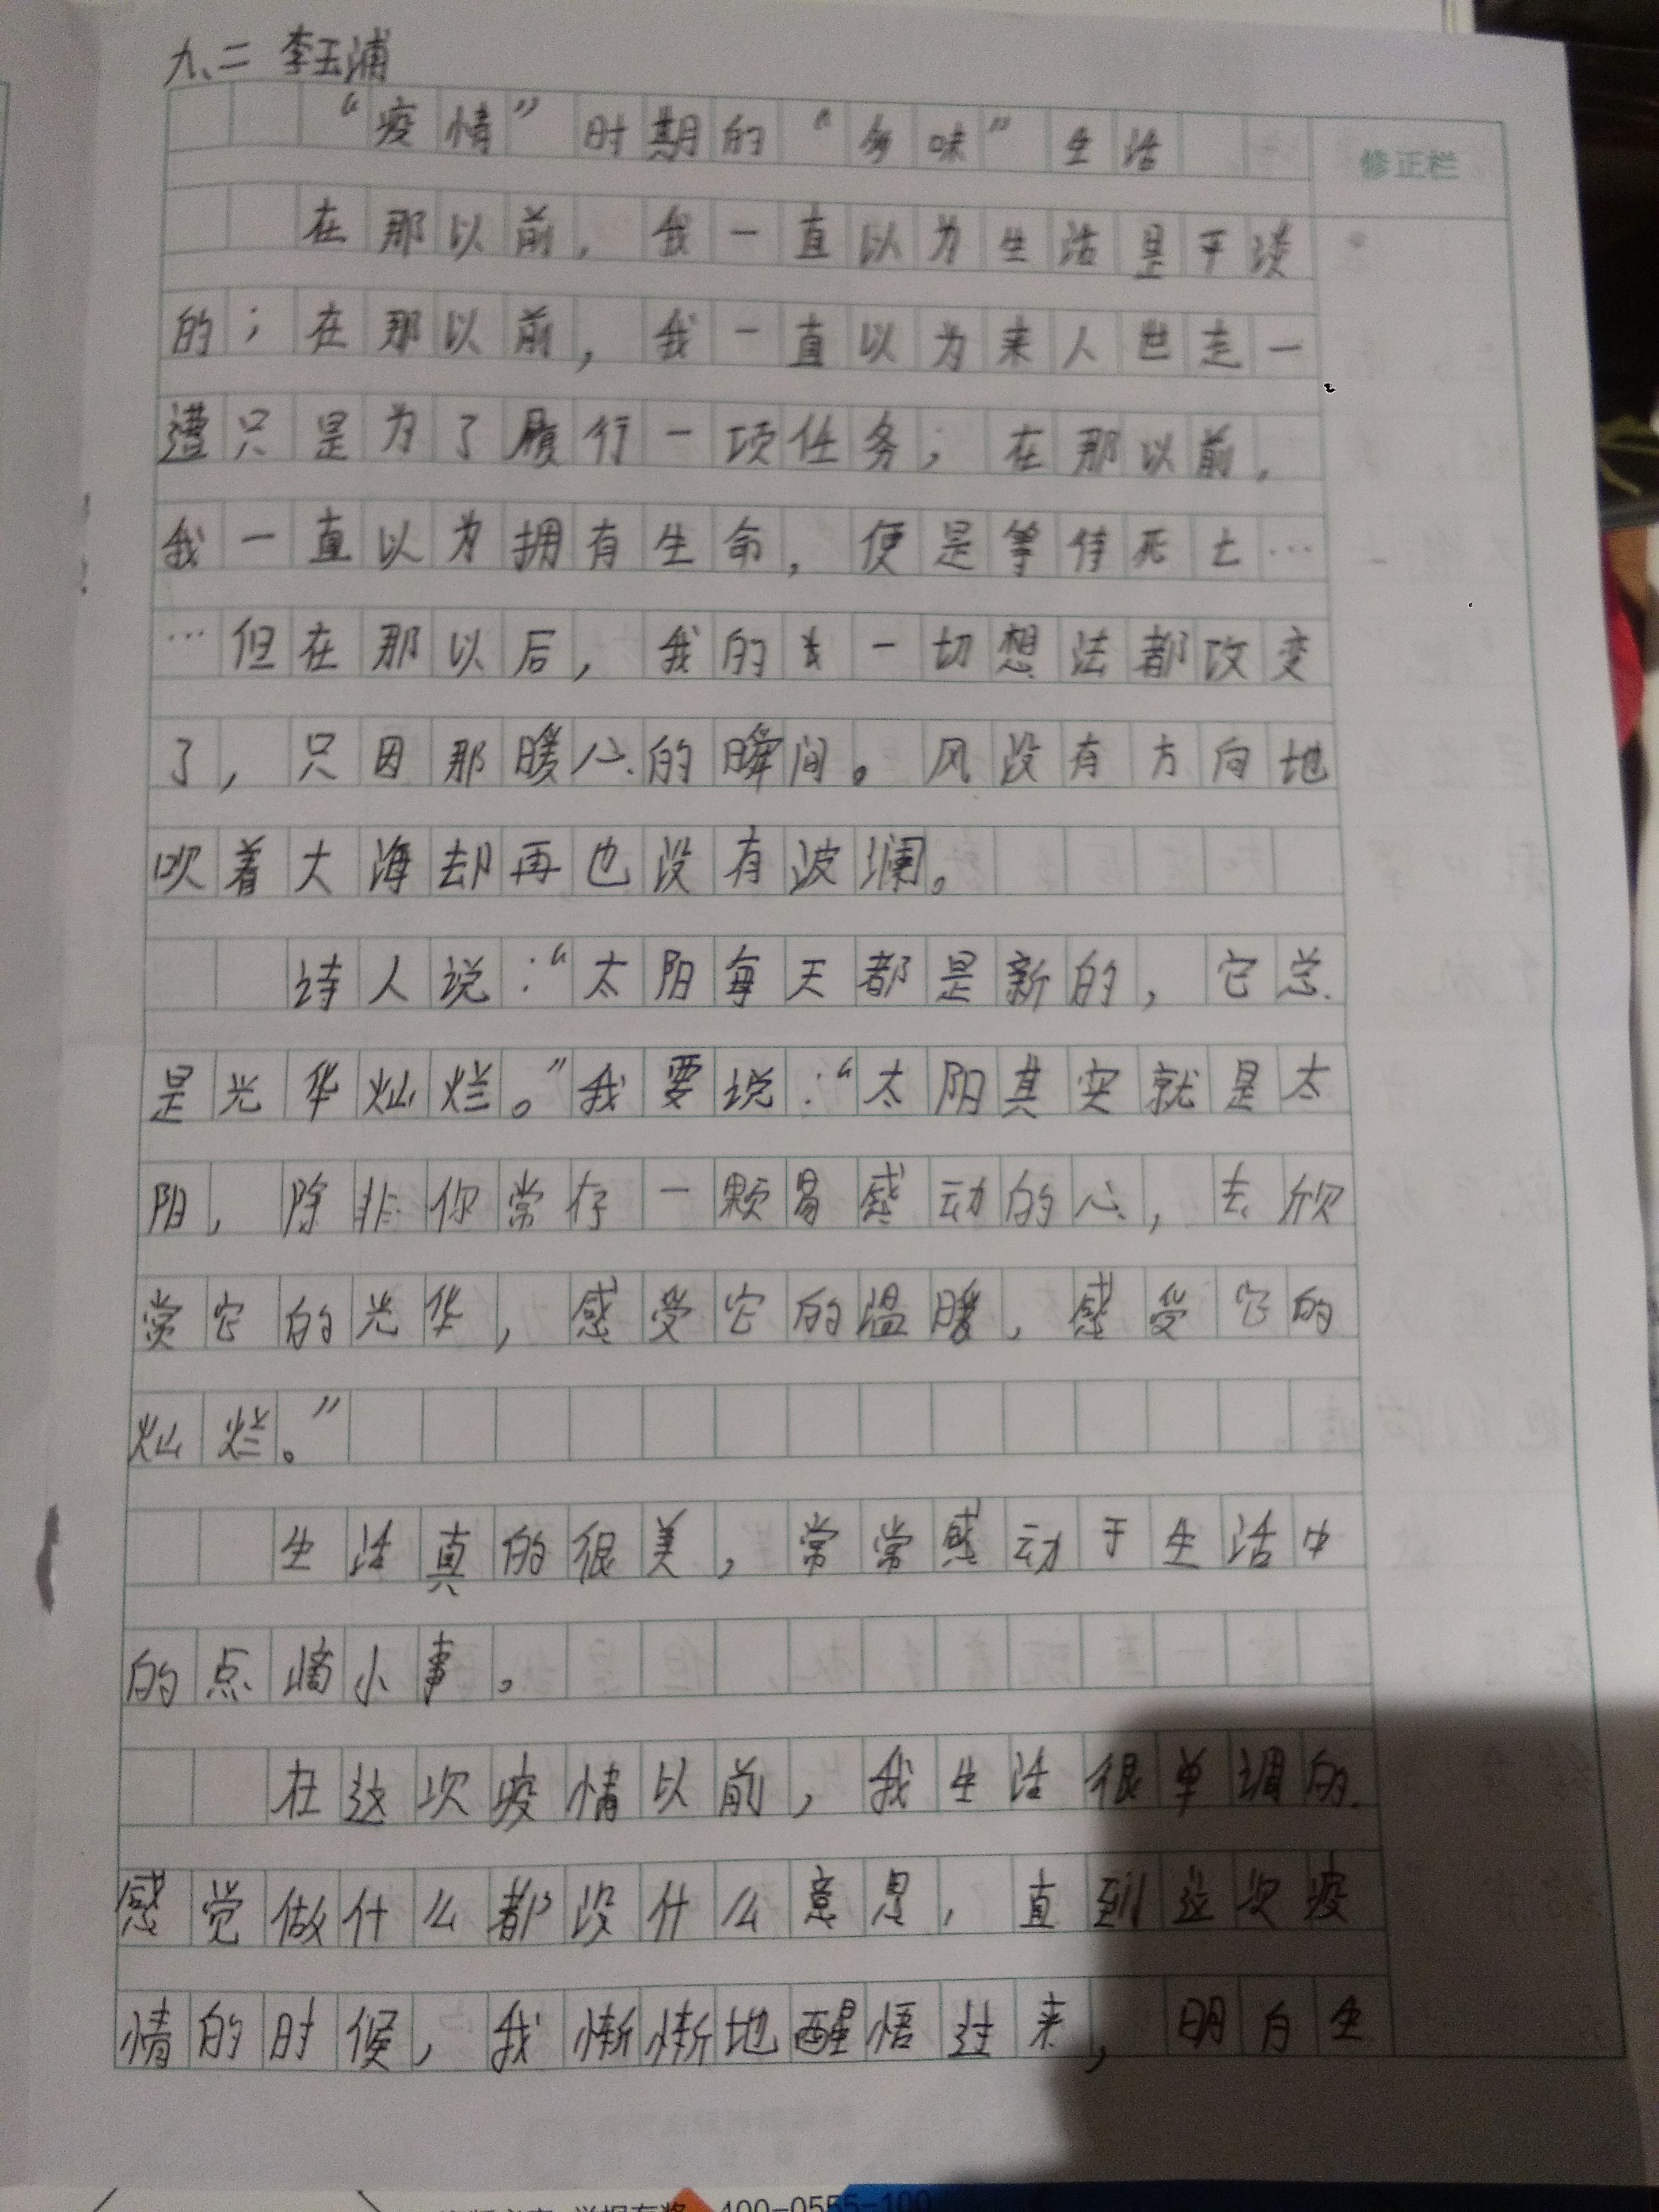 九、二 李玉浦
“疫情”时期的“多味”生活
修正栏
在那以前，我一直以为生活是平淡
的；在那以前，我一直以为来人世走一
遭只是为了履行一项任务；在那以前，
我一直以为拥有生命，便是等待死亡…
…但在那以后，我的一切想法都改变
了，只因那暖心的瞬间。风没有方向地
吹着大海却再也没有波澜。
诗人说：“太阳每天都是新的，它总
是光华灿烂。”我要说：“太阳其实就是太
阳，除非你常存一颗易感动的心，去欣
赏它的光华，感受它的温暖，感受它的
灿烂。”
生活真的很美，常常感动于生活中
的点嘀小事。
在这次疫情以前，我生活很单调的
感觉做什么都没什么意思，直到这次疫
情的时候，我渐渐地醒悟过来，明白生
400-0555-100